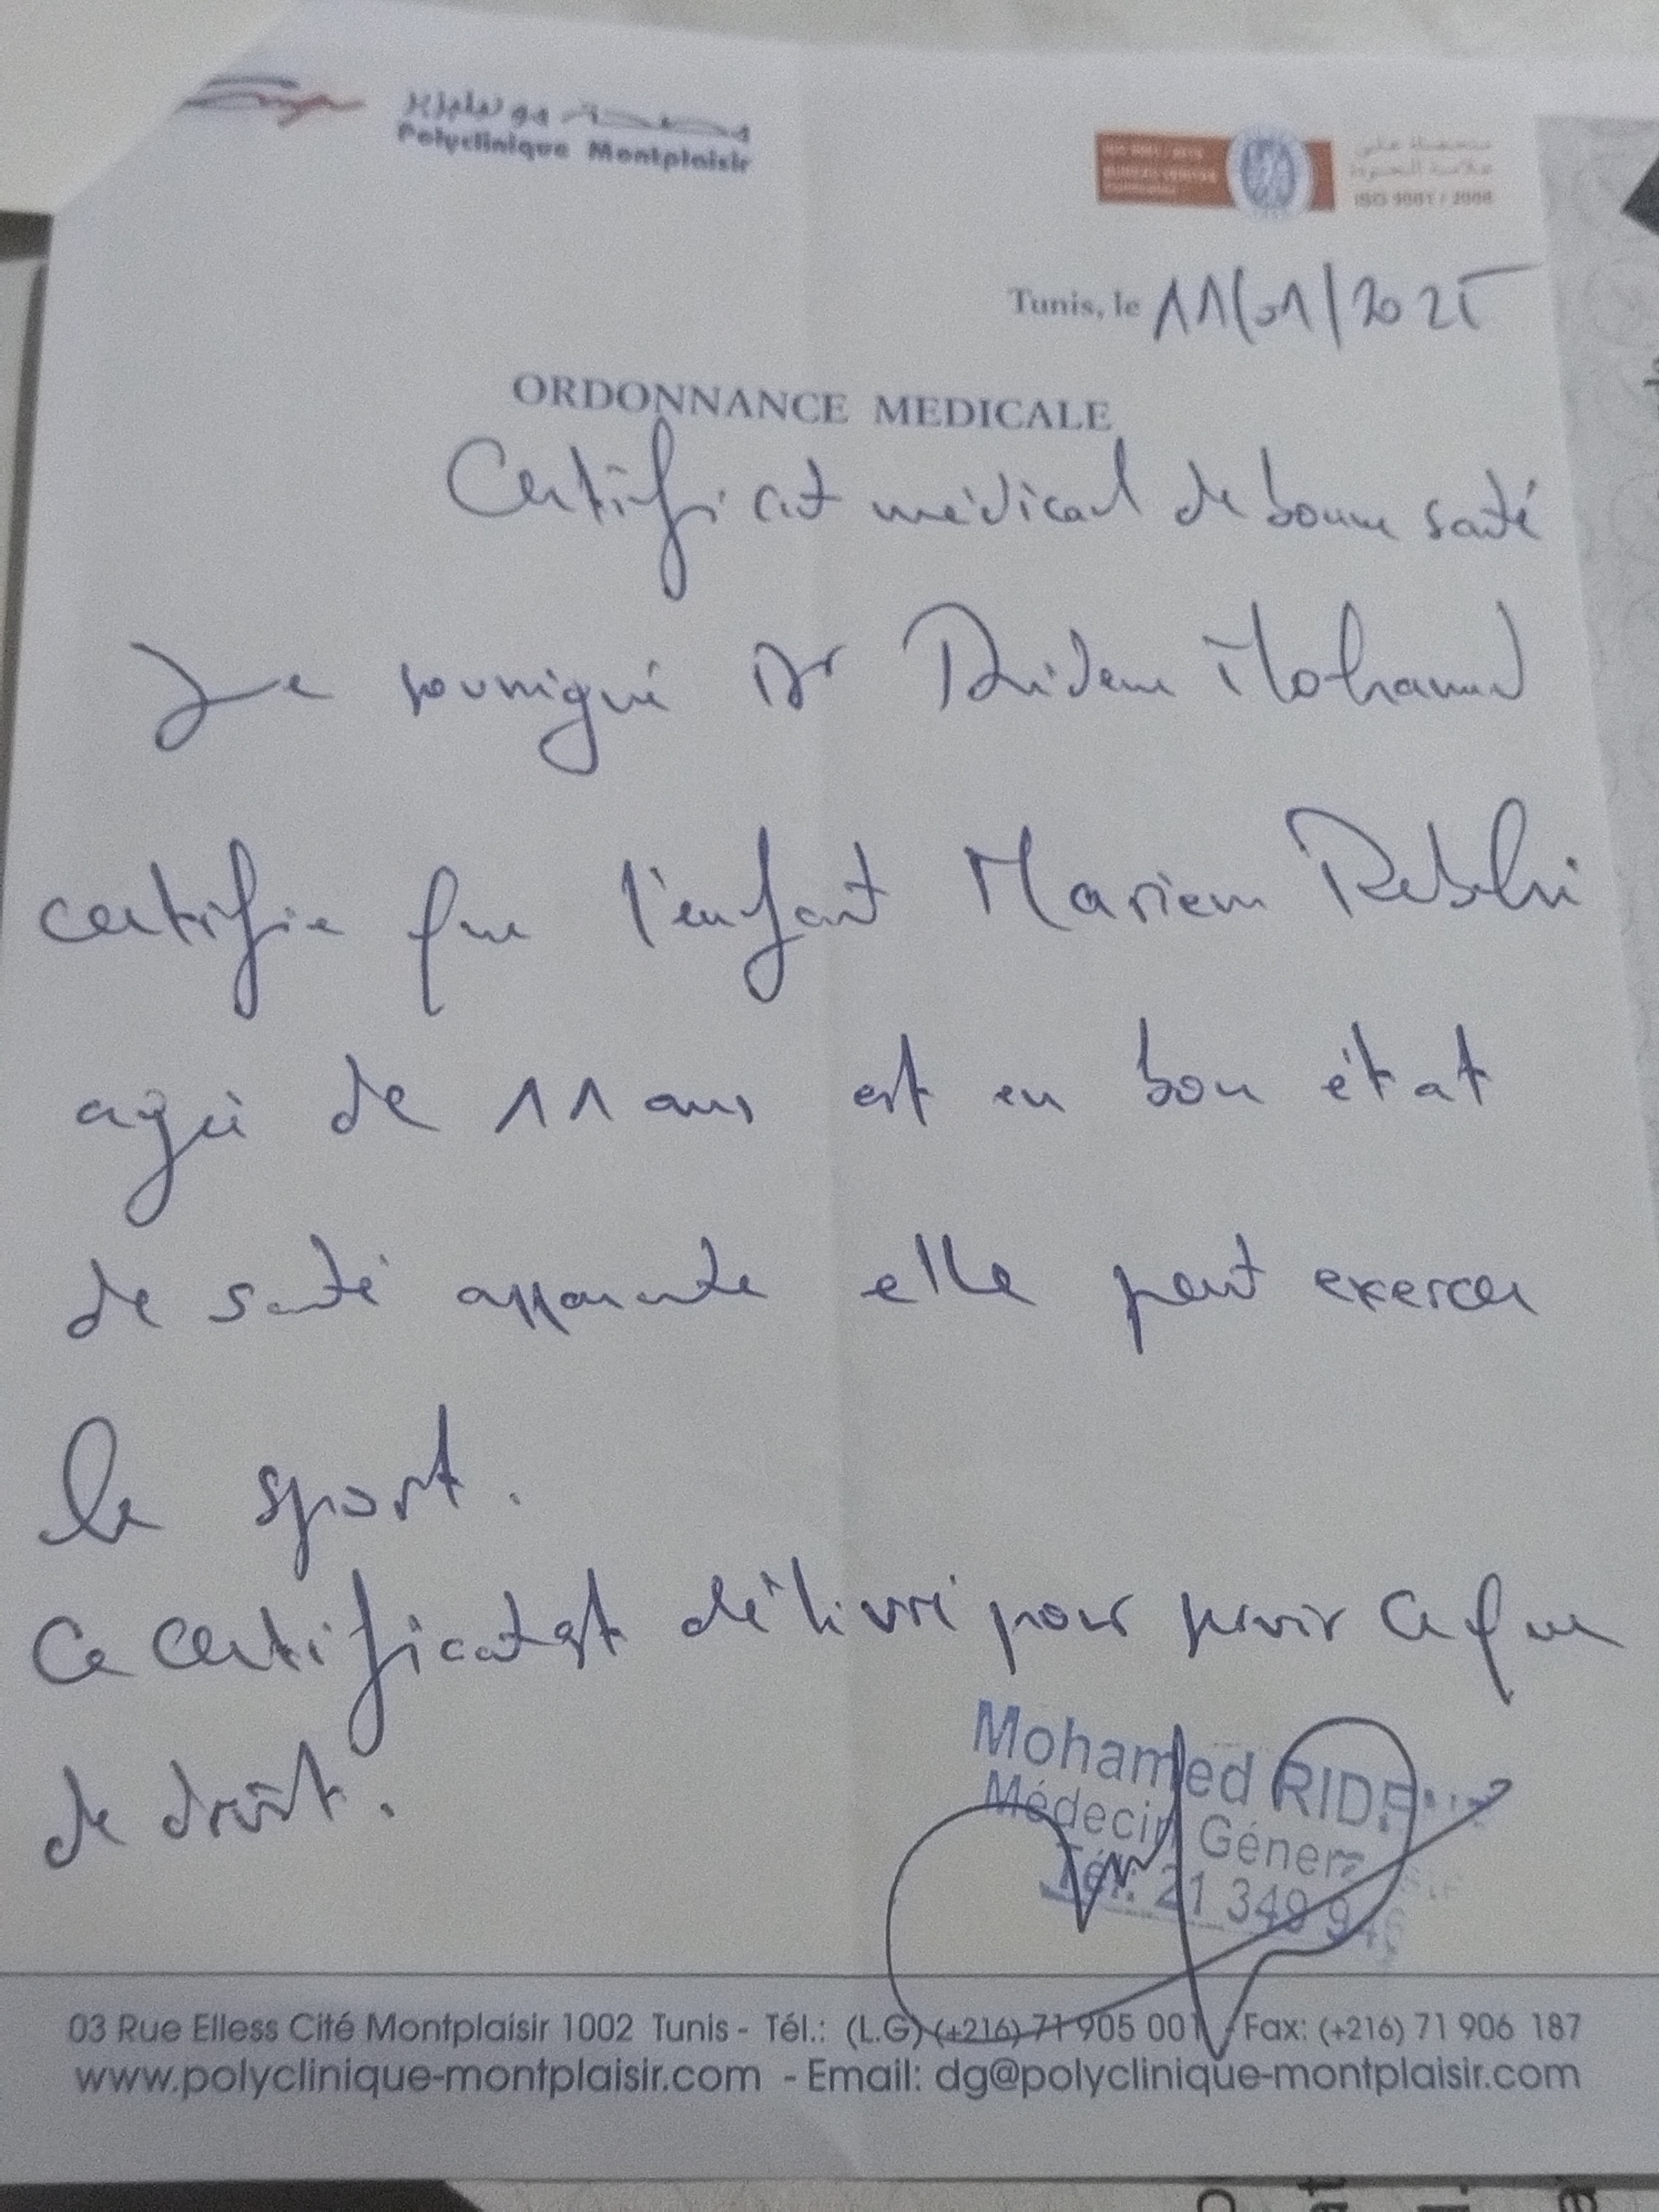 مصحة مونبليزير
Polyclinique Montplaisir
متحصلة على
علامة الجودة
ISO 9001 / 2008
Tunis, le 11/01/2025
ORDONNANCE MEDICALE
Certificat médical de bonne santé
Je soussigné Dr Ridene Mohamed
certifie que l'enfant Mariem Rebhi
agée de 11 ans est en bon état
de santé apparente elle peut exercer
le sport.
Ce certificat est délivré pour servir ce que
de droit.
Mohamed
Médecin
Tél: 21 349
03 Rue Elless Cité Montplaisir 1002 Tunis - Tél.: (L.G) (+216) 71 905 001 - Fax: (+216) 71 906 187
www.polyclinique-montplaisir.com - Email: dg@polyclinique-montplaisir.com